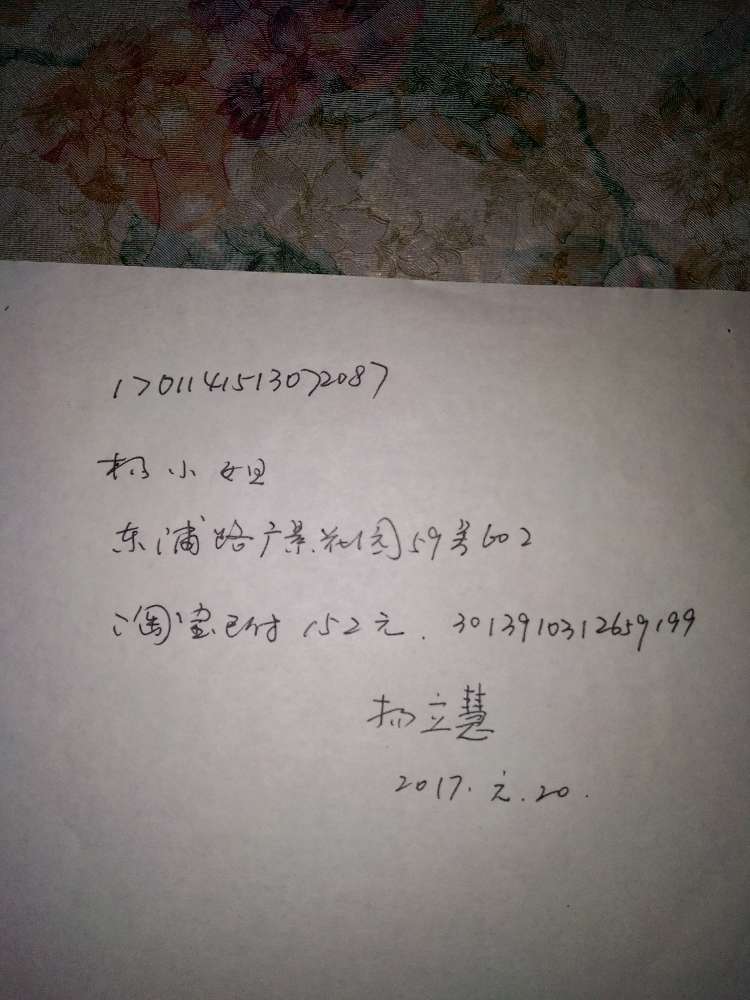 1701141513072087
杨小姐
东浦路广景花园59号602
淘宝已付152元.3013910312659199
杨立慧
2017.元.20.